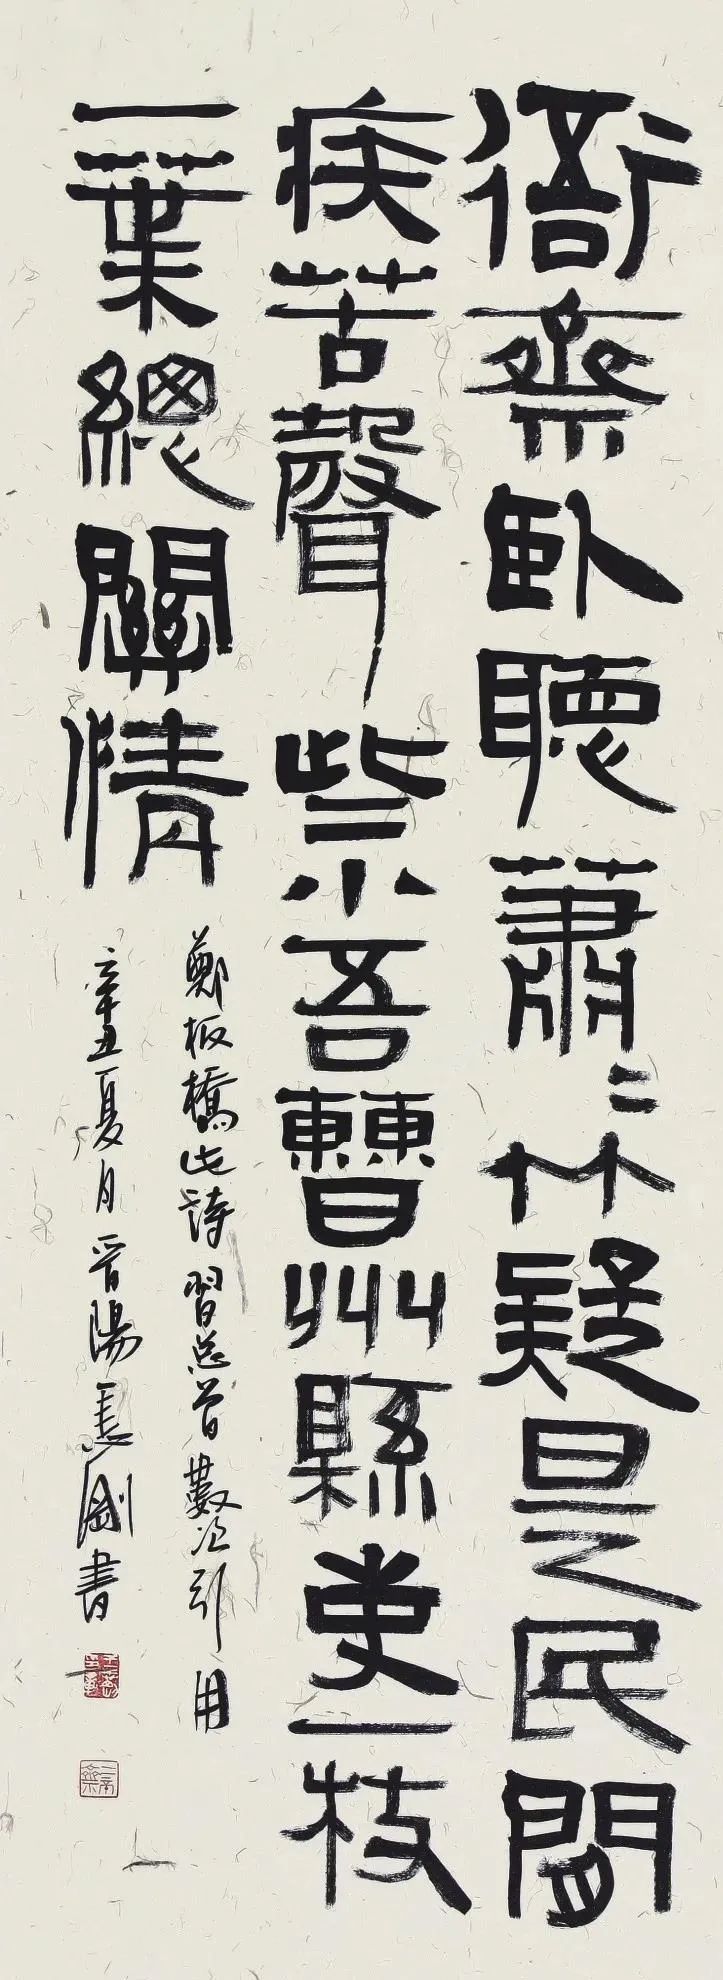 衙齋臥聽蕭〻竹疑是民間
疾苦聲些小吾曹州縣吏一枝
一葉總關情
鄭板橋此詩習總曾數次引用
辛丑夏月晉陽 剛書